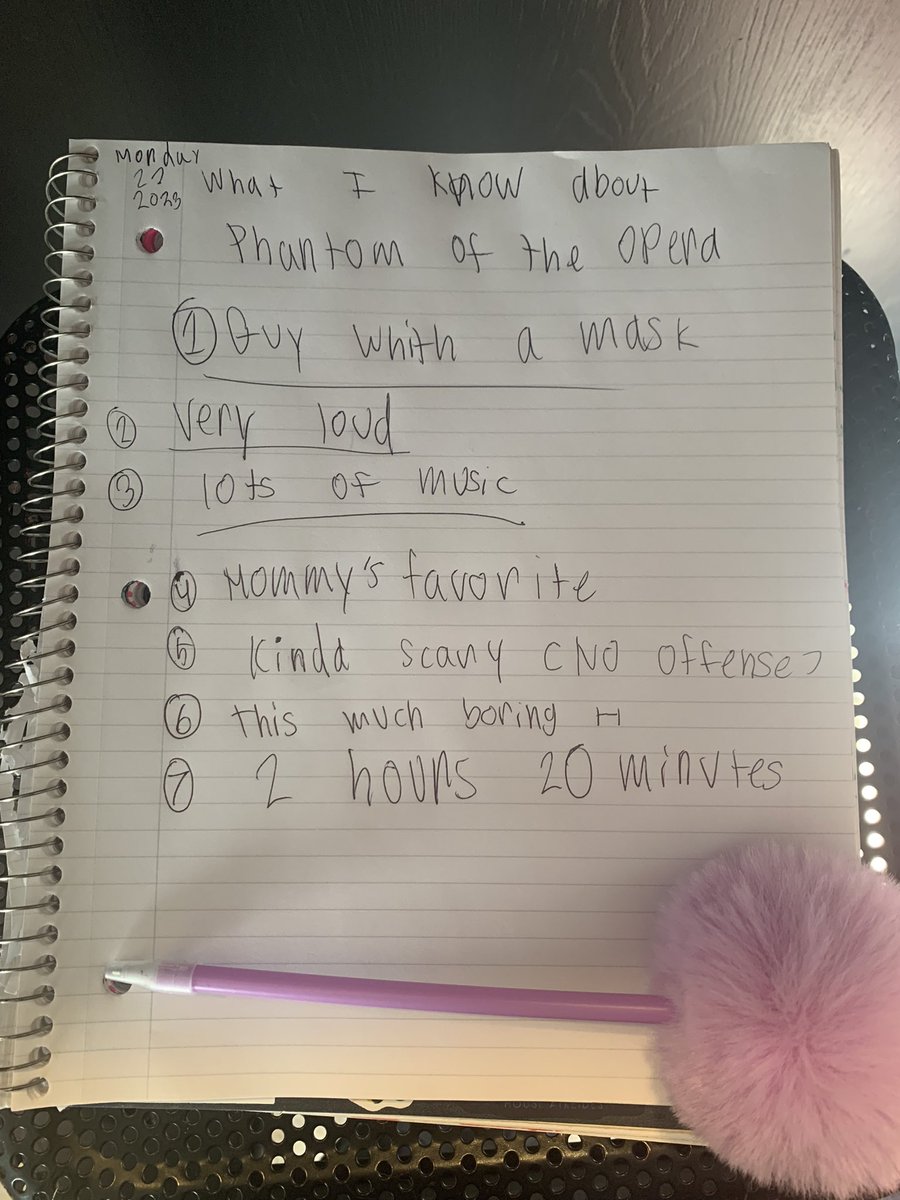 Monday
22
2023
What I know about
Phantom of the opera
1 Guy whith a mask
2 very loud
3 lots of music
4 Mommy's favorite
5 Kinda scary (No offense)
6 this much boring H
7 2 hours 20 minutes